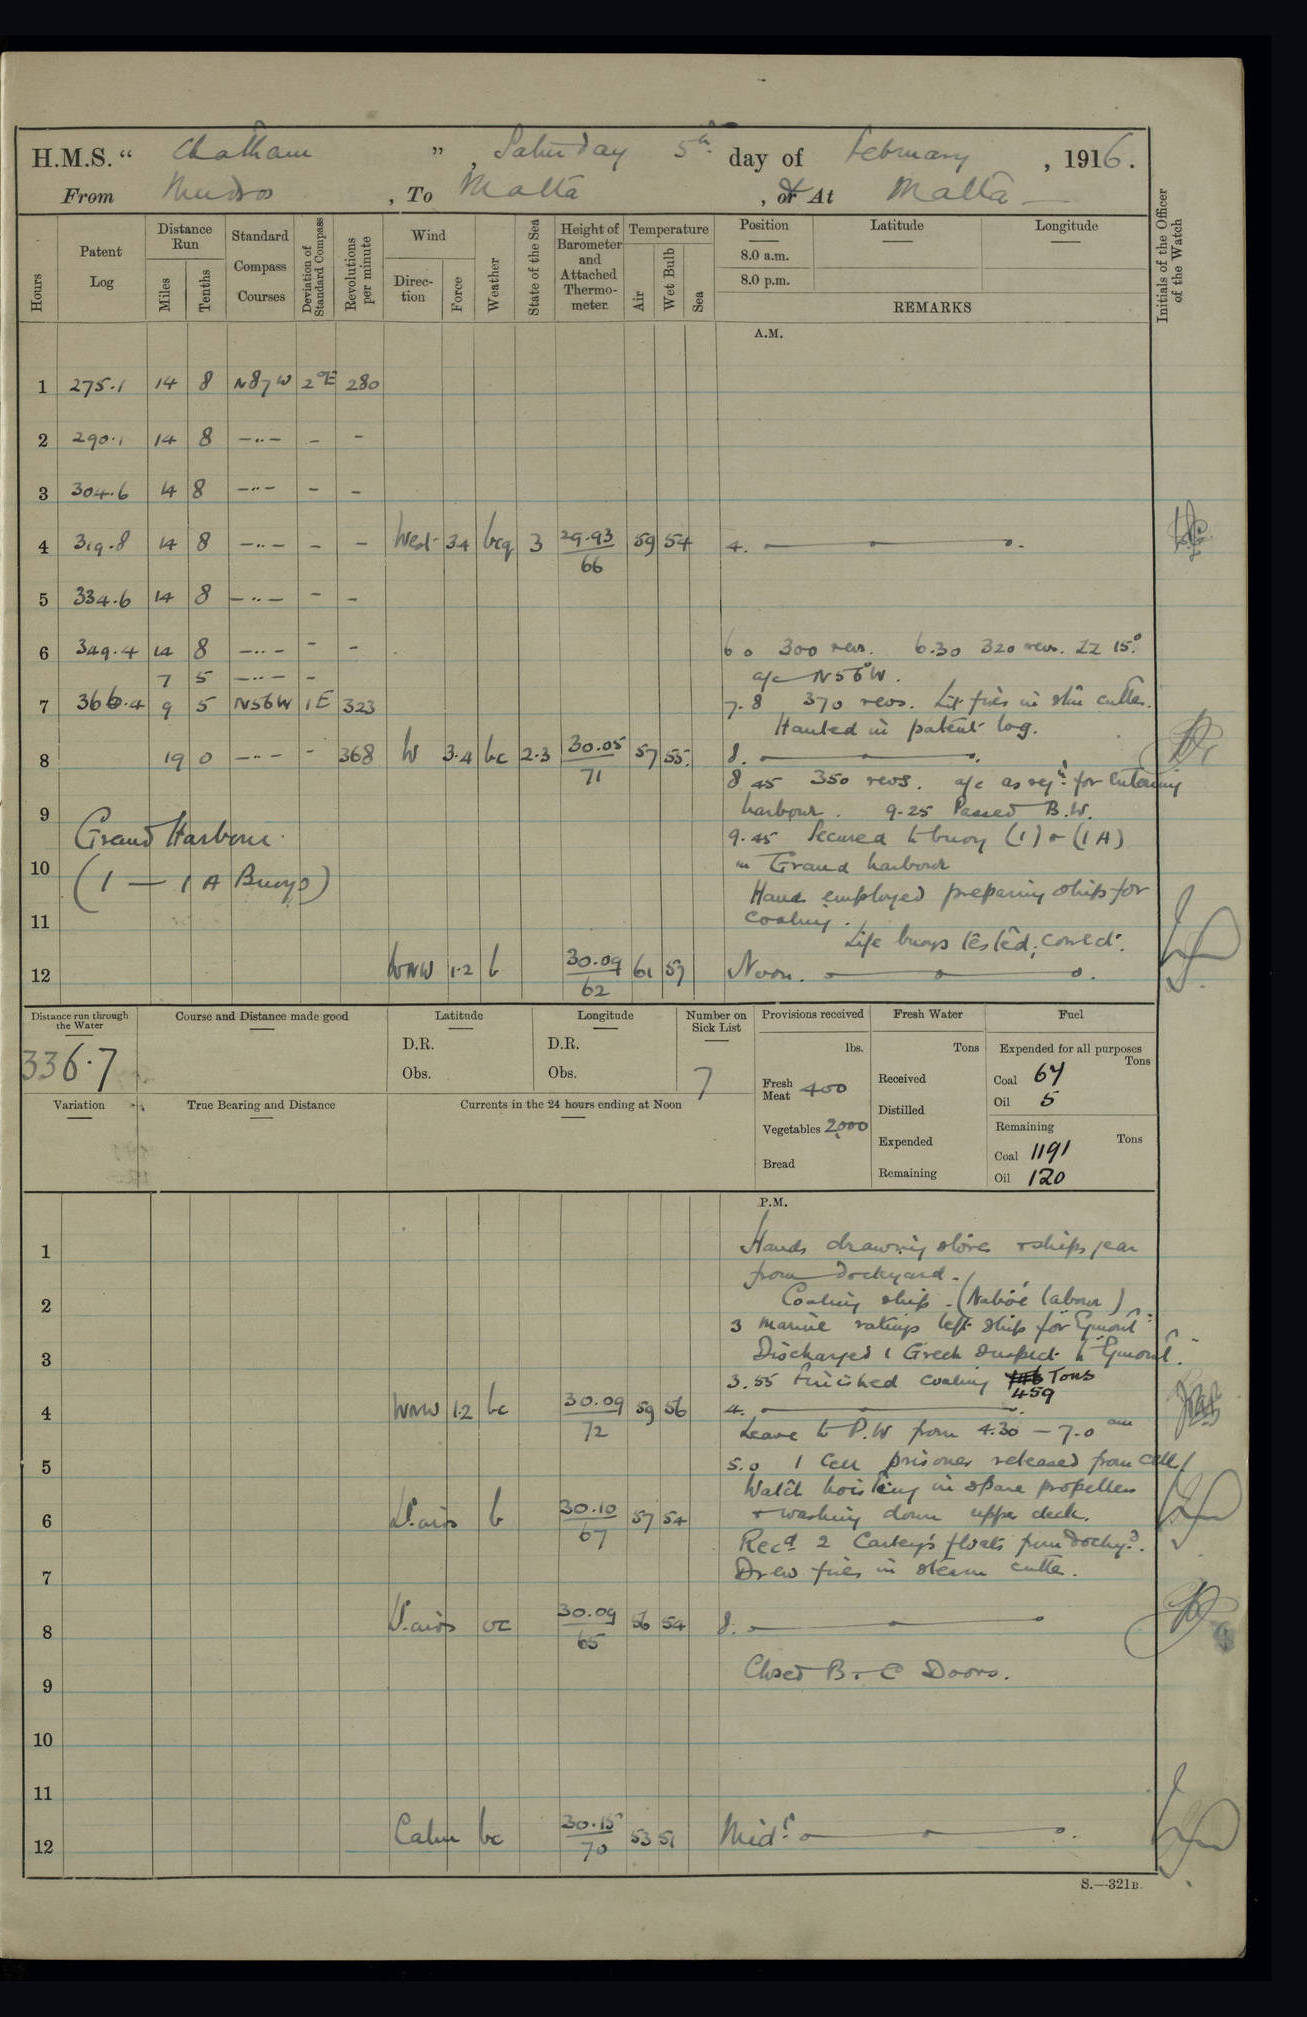 H.M.S. “ Chatham ” , Saturday 5th day of February , 1916.
From Mudros , To Malta , or At Malta
Hours
Patent Log
Distance Run
Miles
Tenths
Standard Compass Courses
Deviation of Standard Compass
Revolutions per minute
Wind
Direction
Force
Weather
State of the Sea
Height of Barometer and Attached Thermometer
Temperature
Air
Wet Bulb
Sea
Position
Latitude
Longitude
8.0 a.m.
8.0 p.m.
REMARKS
Initials of the Officer of the Watch
A.M.
1 275.1 14 8 N87W 2°E 280
2 290.1 14 8 —..— - -
3 304.6 14 8 —..— - -
4 319.8 14 8 —..— - - West 3.4 bcq 3 29.93 59 54 4.
66
5 334.6 14 8 —..— - -
6 349.4 14 8 —..— - - 6.0 300 revs. 6.30 320 revs. ZZ 15°
7 5 —..— - a/c N56°W.
7 366.4 9 5 N56W 1E 323 7.8 370 revs. Lit fires in stm cutter.
Hauled in patent log.
8 19 0 —..— - 368 W 3.4 bc 2.3 30.05 57 55. 8.
71
8.45 350 revs. a/c as reqd for entering
9 harbour. 9.25 Passed B.W.
Grand Harbour. 9.45 Secured to buoy (1) + (1A)
10 in Grand harbour
(1 — 1A Buoys) Hands employed preparing ship for
11 coaling.
Life buoys tested, correct.
12 WNW 1.2 b 30.09 61 57 Noon.
62
Distance run through the Water
336.7
Course and Distance made good
Latitude
D.R.
Obs.
Longitude
D.R.
Obs.
Number on Sick List
7
Provisions received
lbs.
Fresh Meat 400
Vegetables 2000
Bread
Fresh Water
Tons
Received
Distilled
Expended
Remaining
Fuel
Expended for all purposes
Tons
Coal 67
Oil 5
Remaining
Tons
Coal 1191
Oil 120
Variation
True Bearing and Distance
Currents in the 24 hours ending at Noon
P.M.
1 Hands drawing stores + ships gear
from dockyard.
2 Coaling ship. (Native labour)
3 marine ratings left ship for "Egmont"
3 Discharged 1 Greek suspect to "Egmont".
3.55 Finished coaling Tons
459
4 WNW 1.2 bc 30.09 59 56 4.
72
Leave to P.W from 4.30 — 7.0 am
5 5.0 1 Cell prisoner released from cell
Watch hoisting in spare propeller
6 Lt. airs b 30.10 57 54 + washing down upper deck.
67
Recd 2 Carley's floats from dockyd.
7 Drew fires in steam cutter.
8 Lt. airs oc 30.09 56 54 8.
65
9 Closed B + C Doors.
10
11
12 Calm bc 30.15 53 51 Midt.
70
S.—321B.